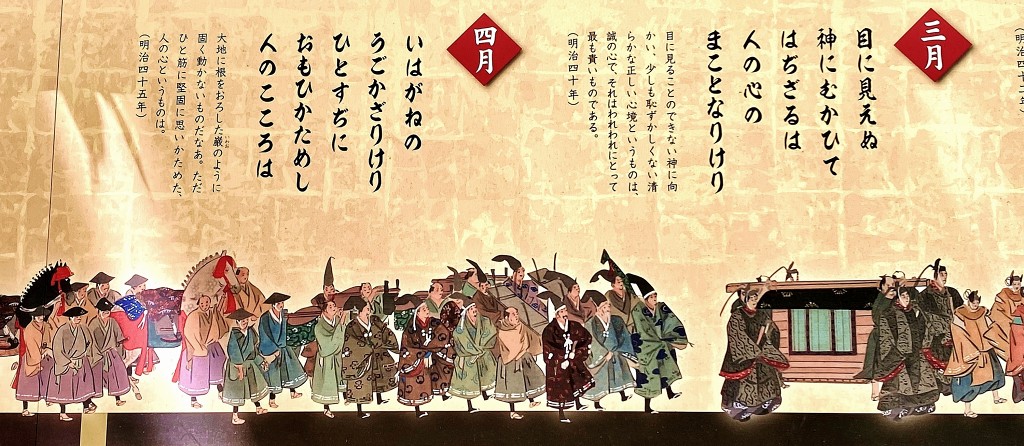 三月
目に見えぬ
神にむかひて
はぢざるは
人の心の
まことなりけり
目に見ることのできない神に向
かい、少しも恥ずかしくない清
らかな正しい心境というものは、
誠の心で、それはわれわれにとって
最も貴いものである。
（明治四十年）
四月
いはがねの
うごかざりけり
ひとすぢに
おもひかためし
人のこころは
大地に根をおろした巌のように
いわお
固く動かないものだなあ。ただ
ひと筋に堅固に思いかためた、
人の心というものは。
（明治四十五年）